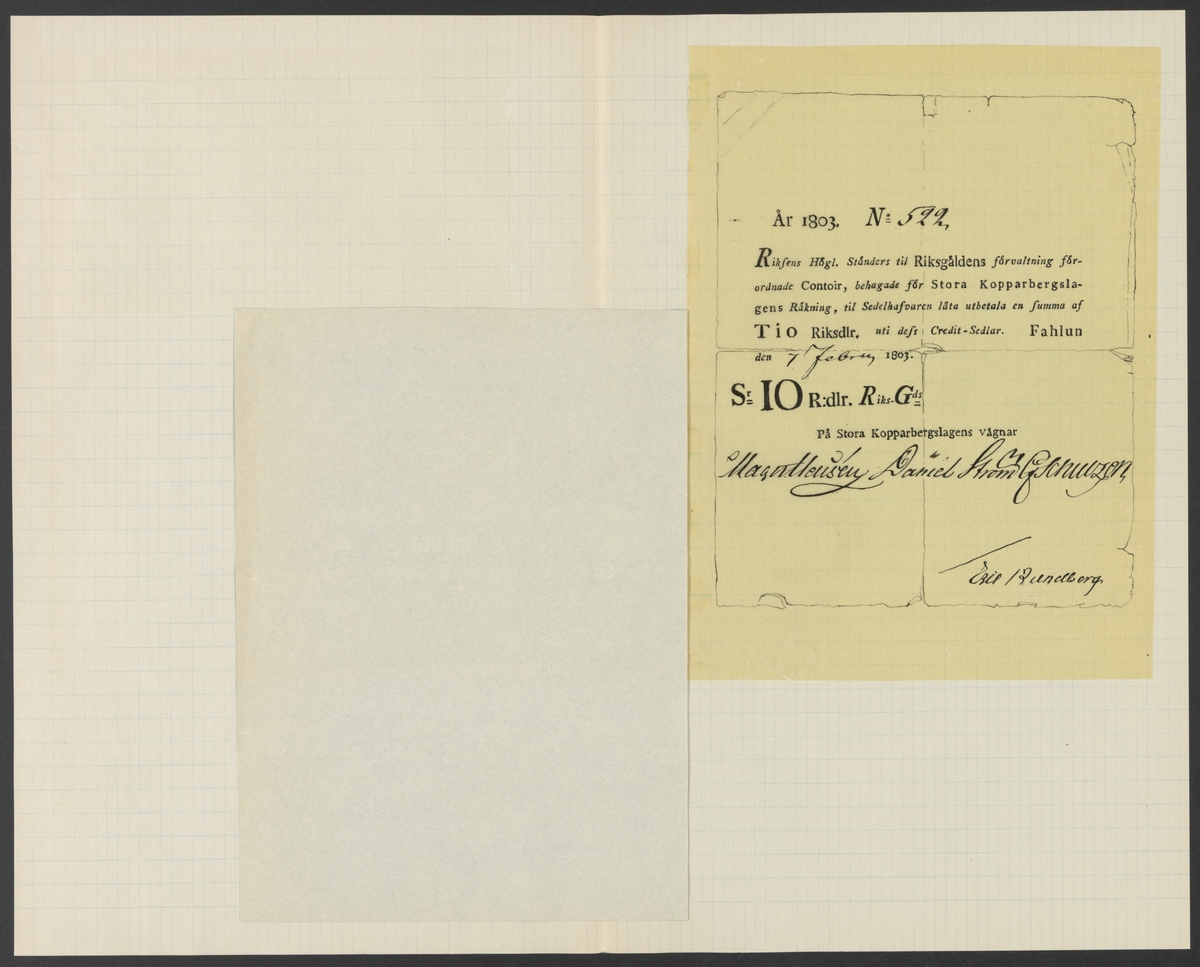 År 1803. No 522,
Rikſens Högl. Ständers til Riksgäldens förvaltning för-
ordnade Contoir, behagade för Stora Kopparbergsla-
gens Räkning, til Sedelhafvaren låta utbetala en ſumma af
Tio Riksdlr. uti deſs Credit-Sedlar. Fahlun
den 7 Febru 1803.
Sr 10 R:dlr. Riks-Gds
På Stora Kopparbergslagens vägnar
Daniel Ström
Eric Rundberg